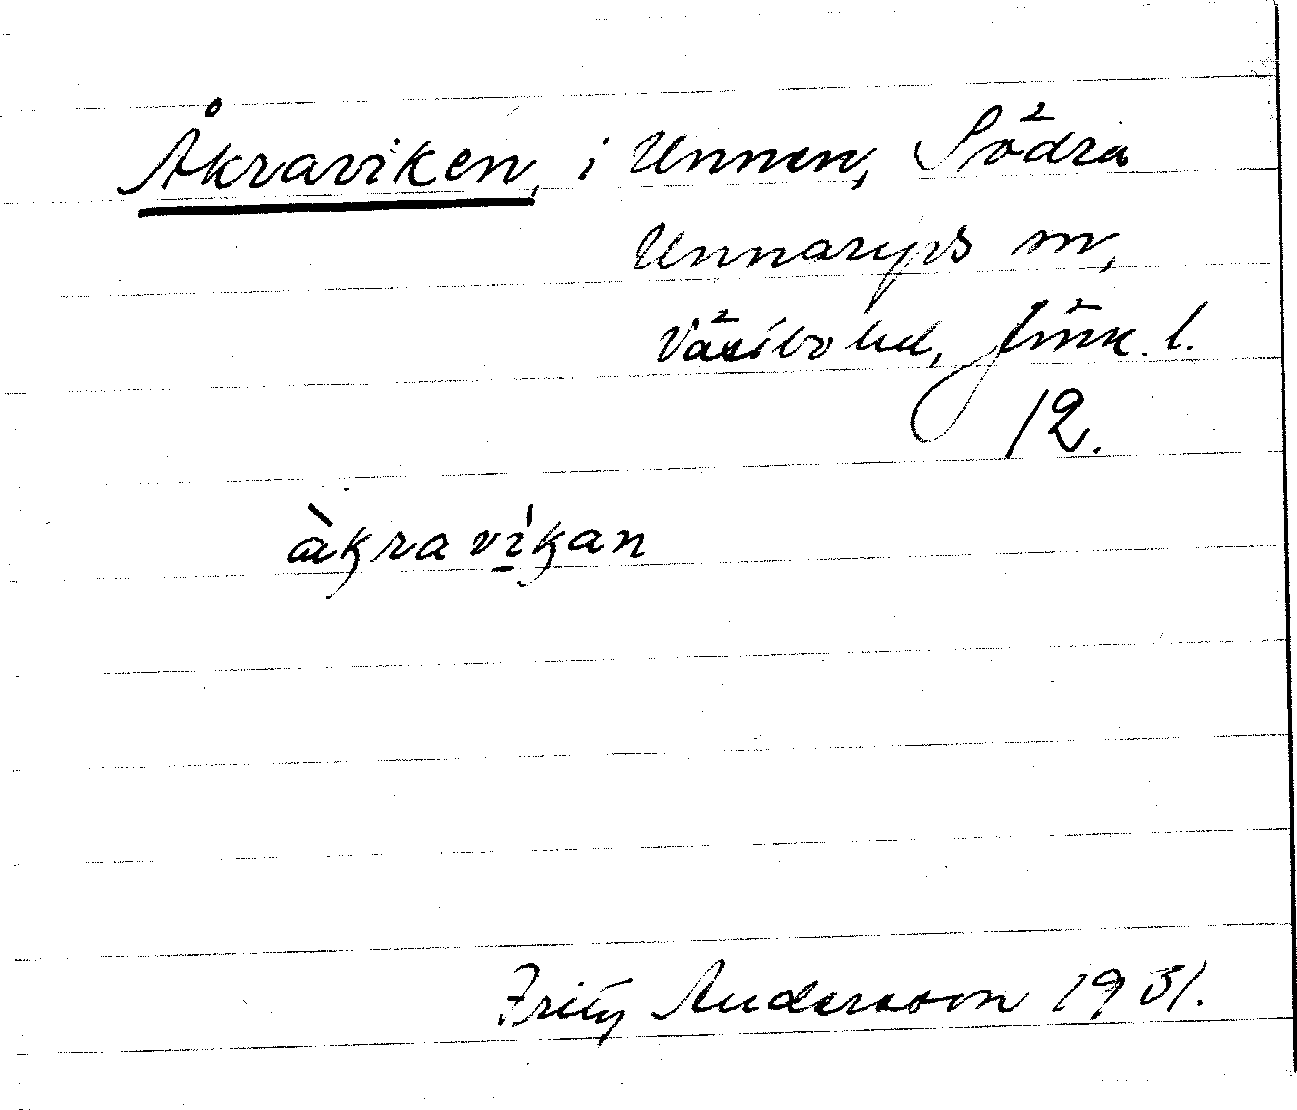 Åkraviken, i Unnen, Södra
Unnaryds sn,
Västbo hd, Jönk. l.
12.
àkra víkan
Fritz Andersson 1931.